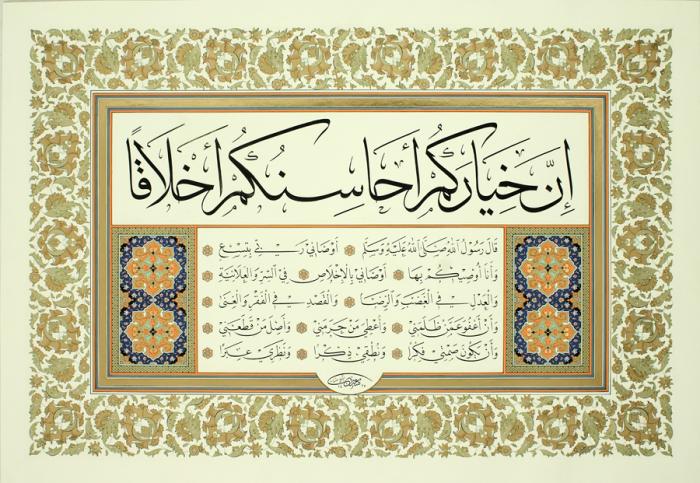 إِنَّ خِيَارَكُمْ أَحَاسِنُكُمْ أَخْلَاقًا
قَالَ رَسُولُ اللهِ صَلَّى اللهُ عَلَيْهِ وَسَلَّمَ أَوْصَانِي رَبِّي بِتِسْعٍ
وَأَنَا أُوصِيكُمْ بِهَا أَوْصَانِي بِالْإِخْلَاصِ فِي السِّرِّ وَالْعَلَانِيَةِ
وَالْعَدْلِ فِي الْغَضَبِ وَالرِّضَا وَالْقَصْدِ فِي الْفَقْرِ وَالْغِنَى
وَأَنْ أَعْفُوَ عَمَّنْ ظَلَمَنِي وَأُعْطِيَ مَنْ حَرَمَنِي وَأَصِلَ مَنْ قَطَعَنِي
وَأَنْ يَكُونَ صَمْتِي فِكْرًا وَنُطْقِي ذِكْرًا وَنَظَرِي عِبَرًا